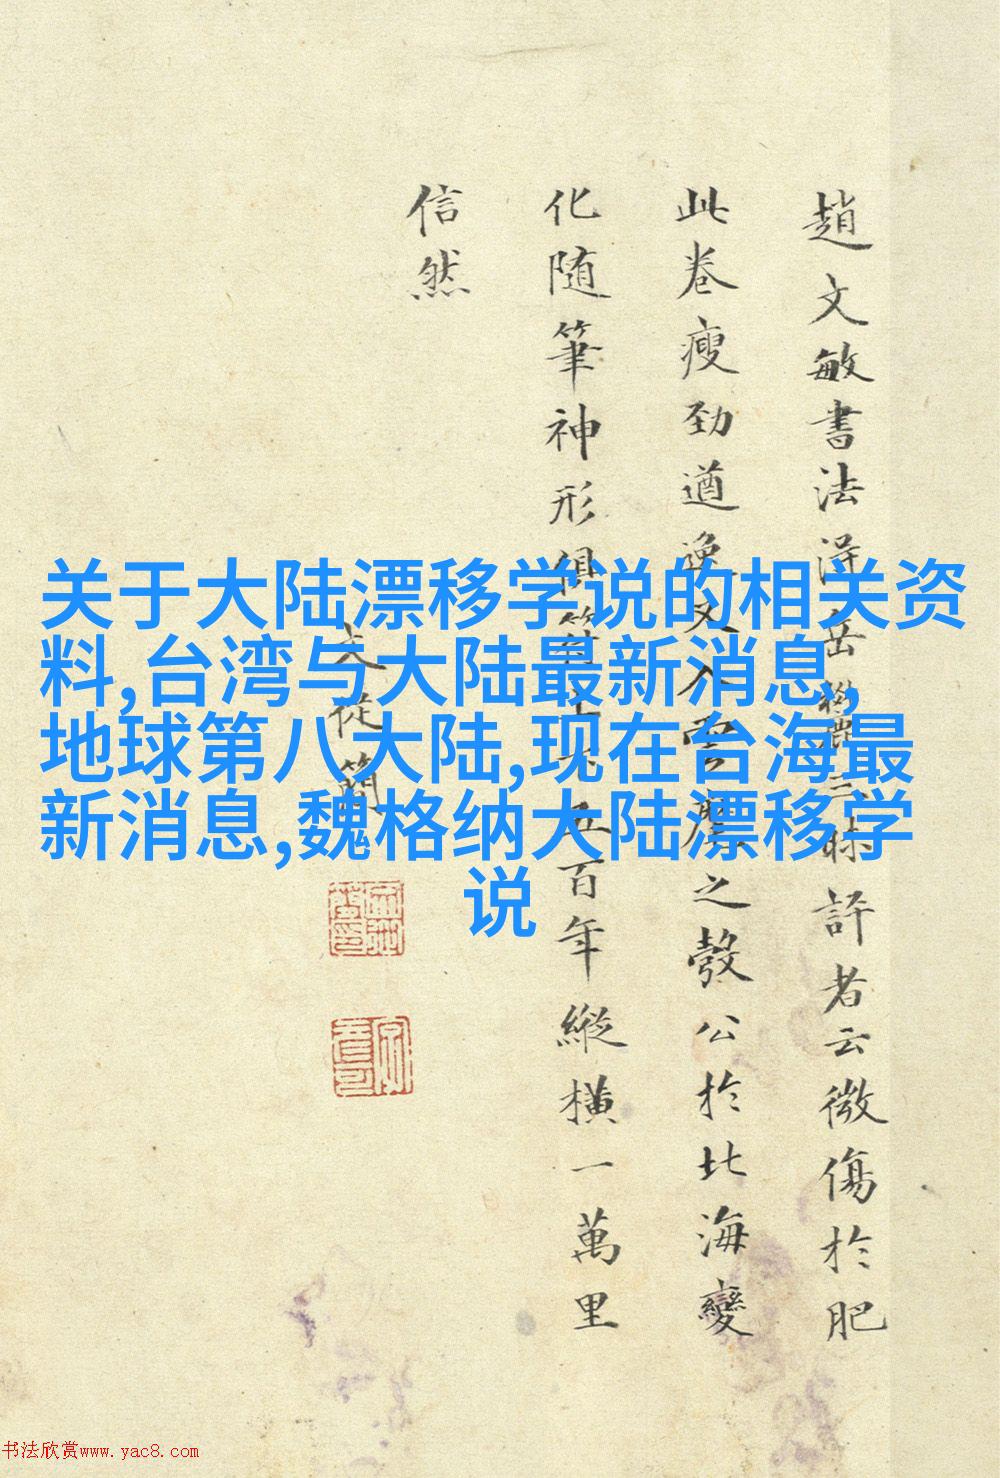 关于大陆漂移学说的相关资
料,台湾与大陆最新消息,
地球第八大陆,现在台海最
新消息,魏格纳大陆漂移学
说
趙文敏書法淂岳麓三昧評者云微傷於肥
此卷瘦勁遒逸又入雲麾之彀公於北海變
化随筆神形俱上下五百年縱橫一萬里
信然
文從簡
书法欣赏www.yac8.com